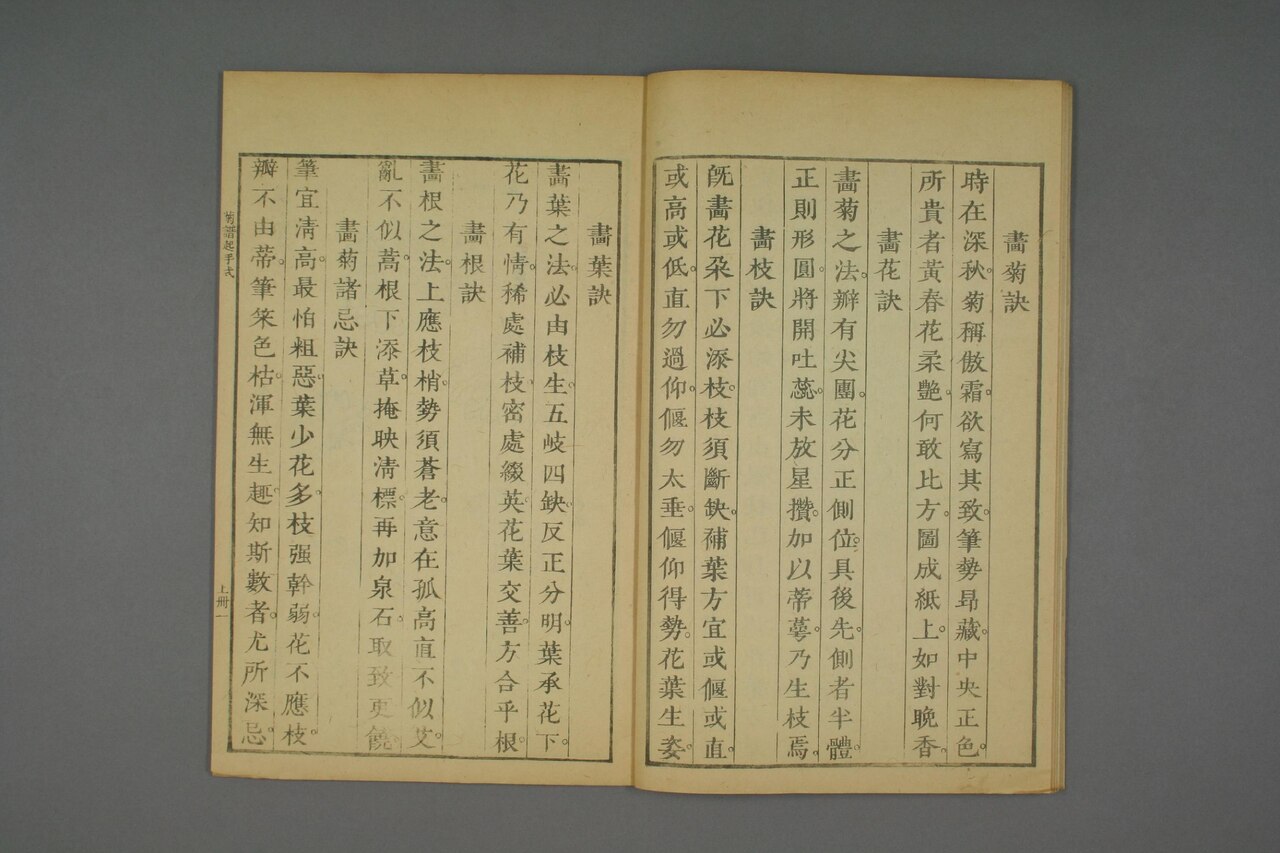 畵菊訣
時在深秋。菊稱傲霜。欲寫其致。筆勢昂藏。中央正色。
所貴者黃。春花柔艷。何敢比方。圖成紙上。如對晚香。
畵花訣
畵菊之法。辦有尖團。花分正側。位具後先。側者半體。
正則形圓。將開吐蕊。未放星攢。加以蒂萼。乃生枝焉。
畵枝訣
旣畵花朶。下必添枝。枝須斷缺。補葉方宜。或偃或直。
或高或低。直勿過仰。偃勿太垂。偃仰得勢。花葉生姿。
畵葉訣
畵葉之法。必由枝生。五岐四缺。反正分明。葉承花下。
花乃有情。稀處補枝。密處綴英。花葉交善。方合乎根。
畵根訣
畵根之法。上應枝梢。勢須蒼老。意在孤高。直不似艾。
亂不似蒿。根下添草。掩映淸標。再加泉石。取致更饒。
畵菊諸忌訣
筆宜淸高。最怕粗惡。葉少花多。枝强幹弱。花不應枝。
瓣不由蒂。筆笨色枯。渾無生趣。知斯數者。尤所深忌。
菊譜起手式
上册一